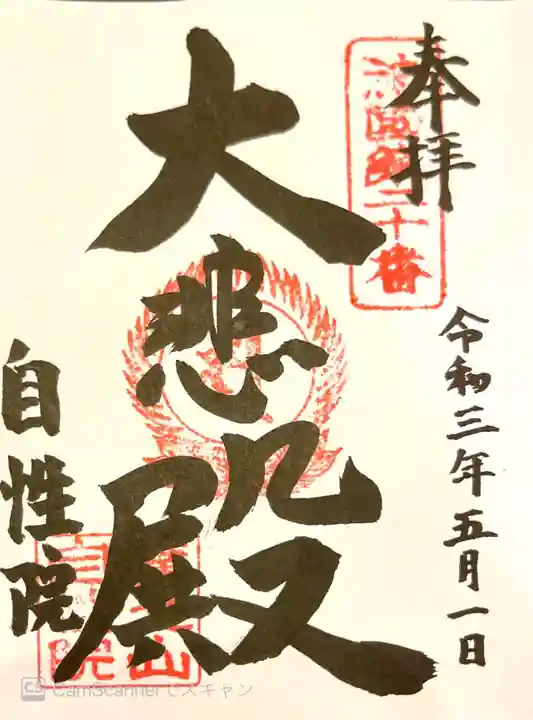 奉拝
令和三年五月一日
大悲殿
自性院
CamScannerでスキャン